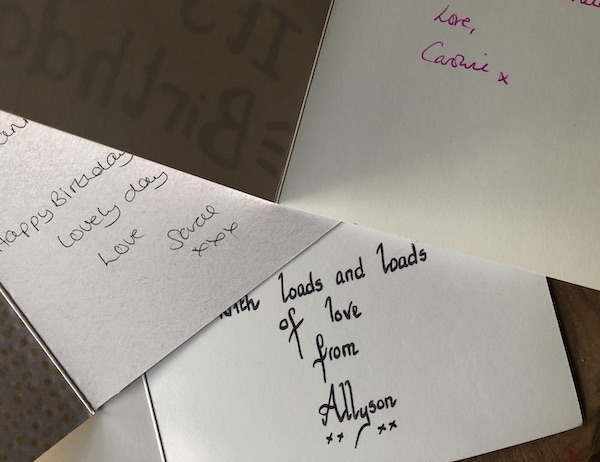 It's
Birthda
Love,
Caroline x
Happy Birthday
Lovely day
Love Sarah
xxx
with loads and loads
of love
from
Allyson
xx xx